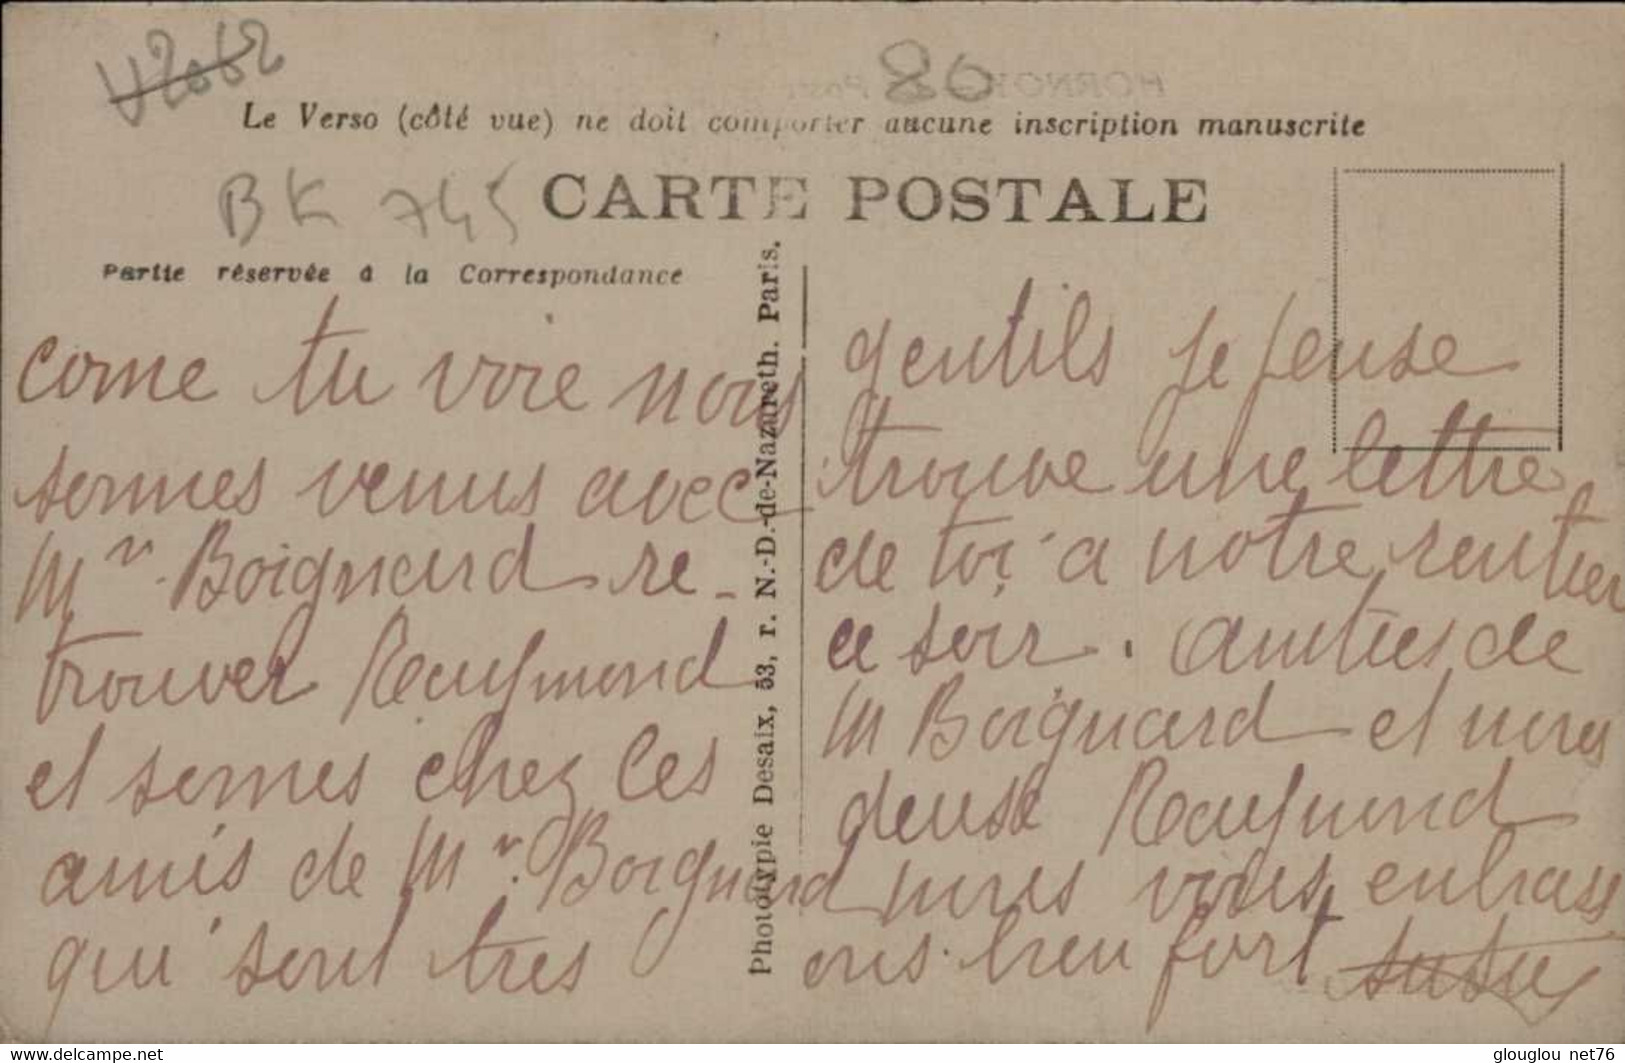 42062
80
HORNOY
Le Verso (côté vue) ne doit comporter aucune inscription manuscrite
BK 745
CARTE POSTALE
Partie réservée à la Correspondance
come tu voie nous
somes venus avec
Mr Boignard re-
trouver Raymond
et somes chez les
amis de Mr. Boignard
qui sont tres
Phototypie Desaix, 53, r. N.-D.-de-Nazareth. Paris.
gentils je pense
trouve une lettre
de toi a notre rentrer
ce soir. Amities de
M Boignard et nous
deuse Raymond
nous vous enbrass
ons bien fort Susu
www.delcampe.net
glouglou_net76